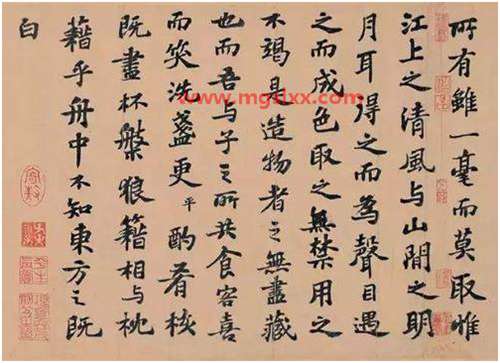 所有雖一毫而莫取惟
江上之清風与山間之明
月耳得之而為聲目遇
之而成色取之無禁用之
不竭是造物者之無盡藏
也而吾与子之所共食客喜
而笑洗盞更平酌肴核
既盡杯槃狼籍相与枕
藉乎舟中不知東方之既
白
www.mgslxx.com